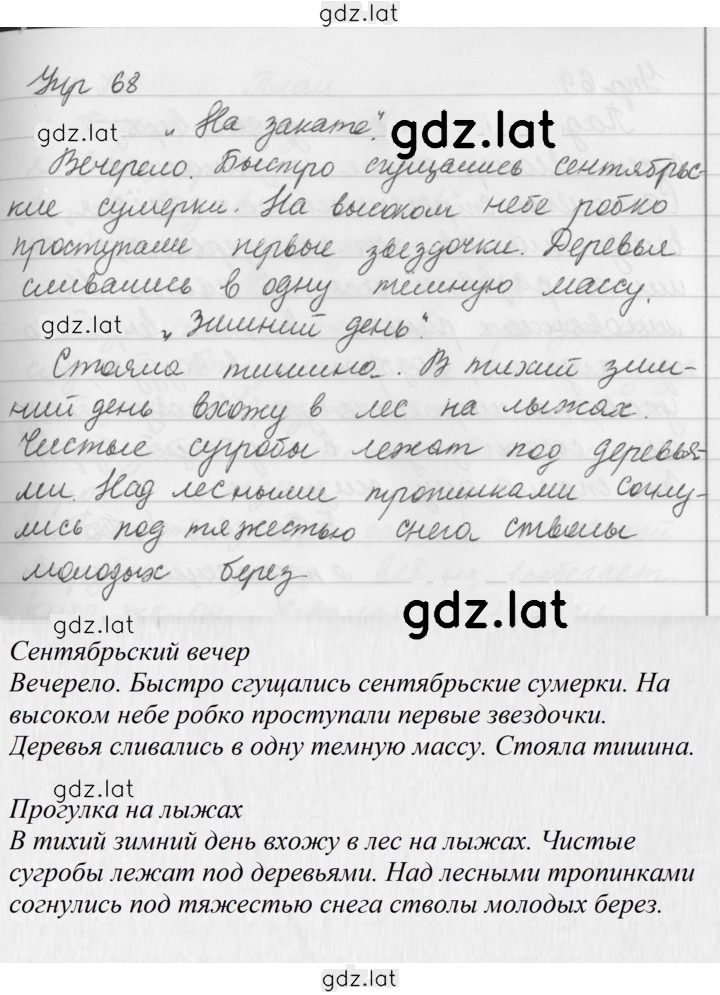 gdz.lat
Упр 68
gdz.lat
„На закате".
gdz.lat
Вечерело. Быстро сгущались сентябрьс-
кие сумерки. На высоком небе робко
проступали первые звездочки. Деревья
сливались в одну тёмную массу.
gdz.lat
„Зимний день".
Стояла тишина. В тихий зим-
ний день вхожу в лес на лыжах.
Чистые сугробы лежат под деревья-
ми. Над лесными тропинками согну-
лись под тяжестью снега стволы
молодых берез
gdz.lat
gdz.lat
Сентябрьский вечер
Вечерело. Быстро сгущались сентябрьские сумерки. На
высоком небе робко проступали первые звездочки.
Деревья сливались в одну темную массу. Стояла тишина.
gdz.lat
Прогулка на лыжах
В тихий зимний день вхожу в лес на лыжах. Чистые
сугробы лежат под деревьями. Над лесными тропинками
согнулись под тяжестью снега стволы молодых берез.
gdz.lat